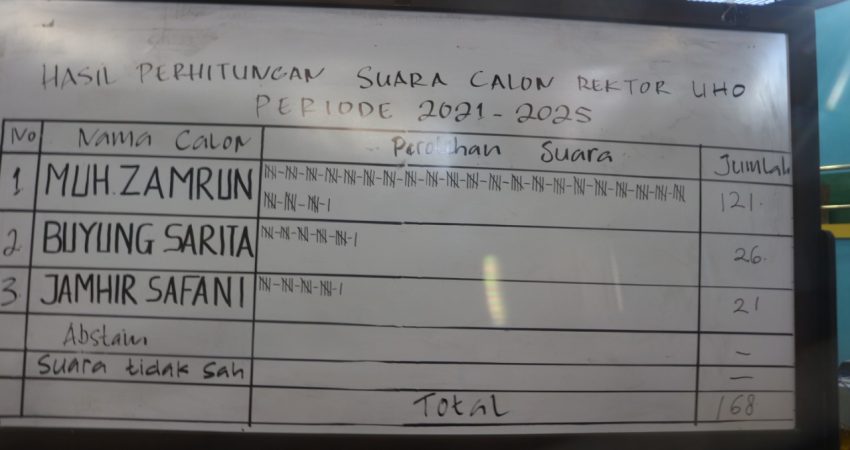 HASIL PERHITUNGAN SUARA CALON REKTOR UHO
PERIODE 2021-2025
No Nama Calon Perolehan Suara Jumlah
1 MUH. ZAMRUN 121.
2 BUYUNG SARITA 26.
3. JAMHIR SAFANI 21
Abstain -
Suara tidak sah -
Total 168